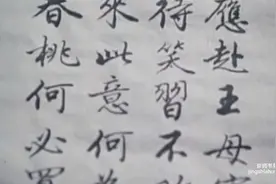 應赴王母
待笑習不
來此意何
春桃何必